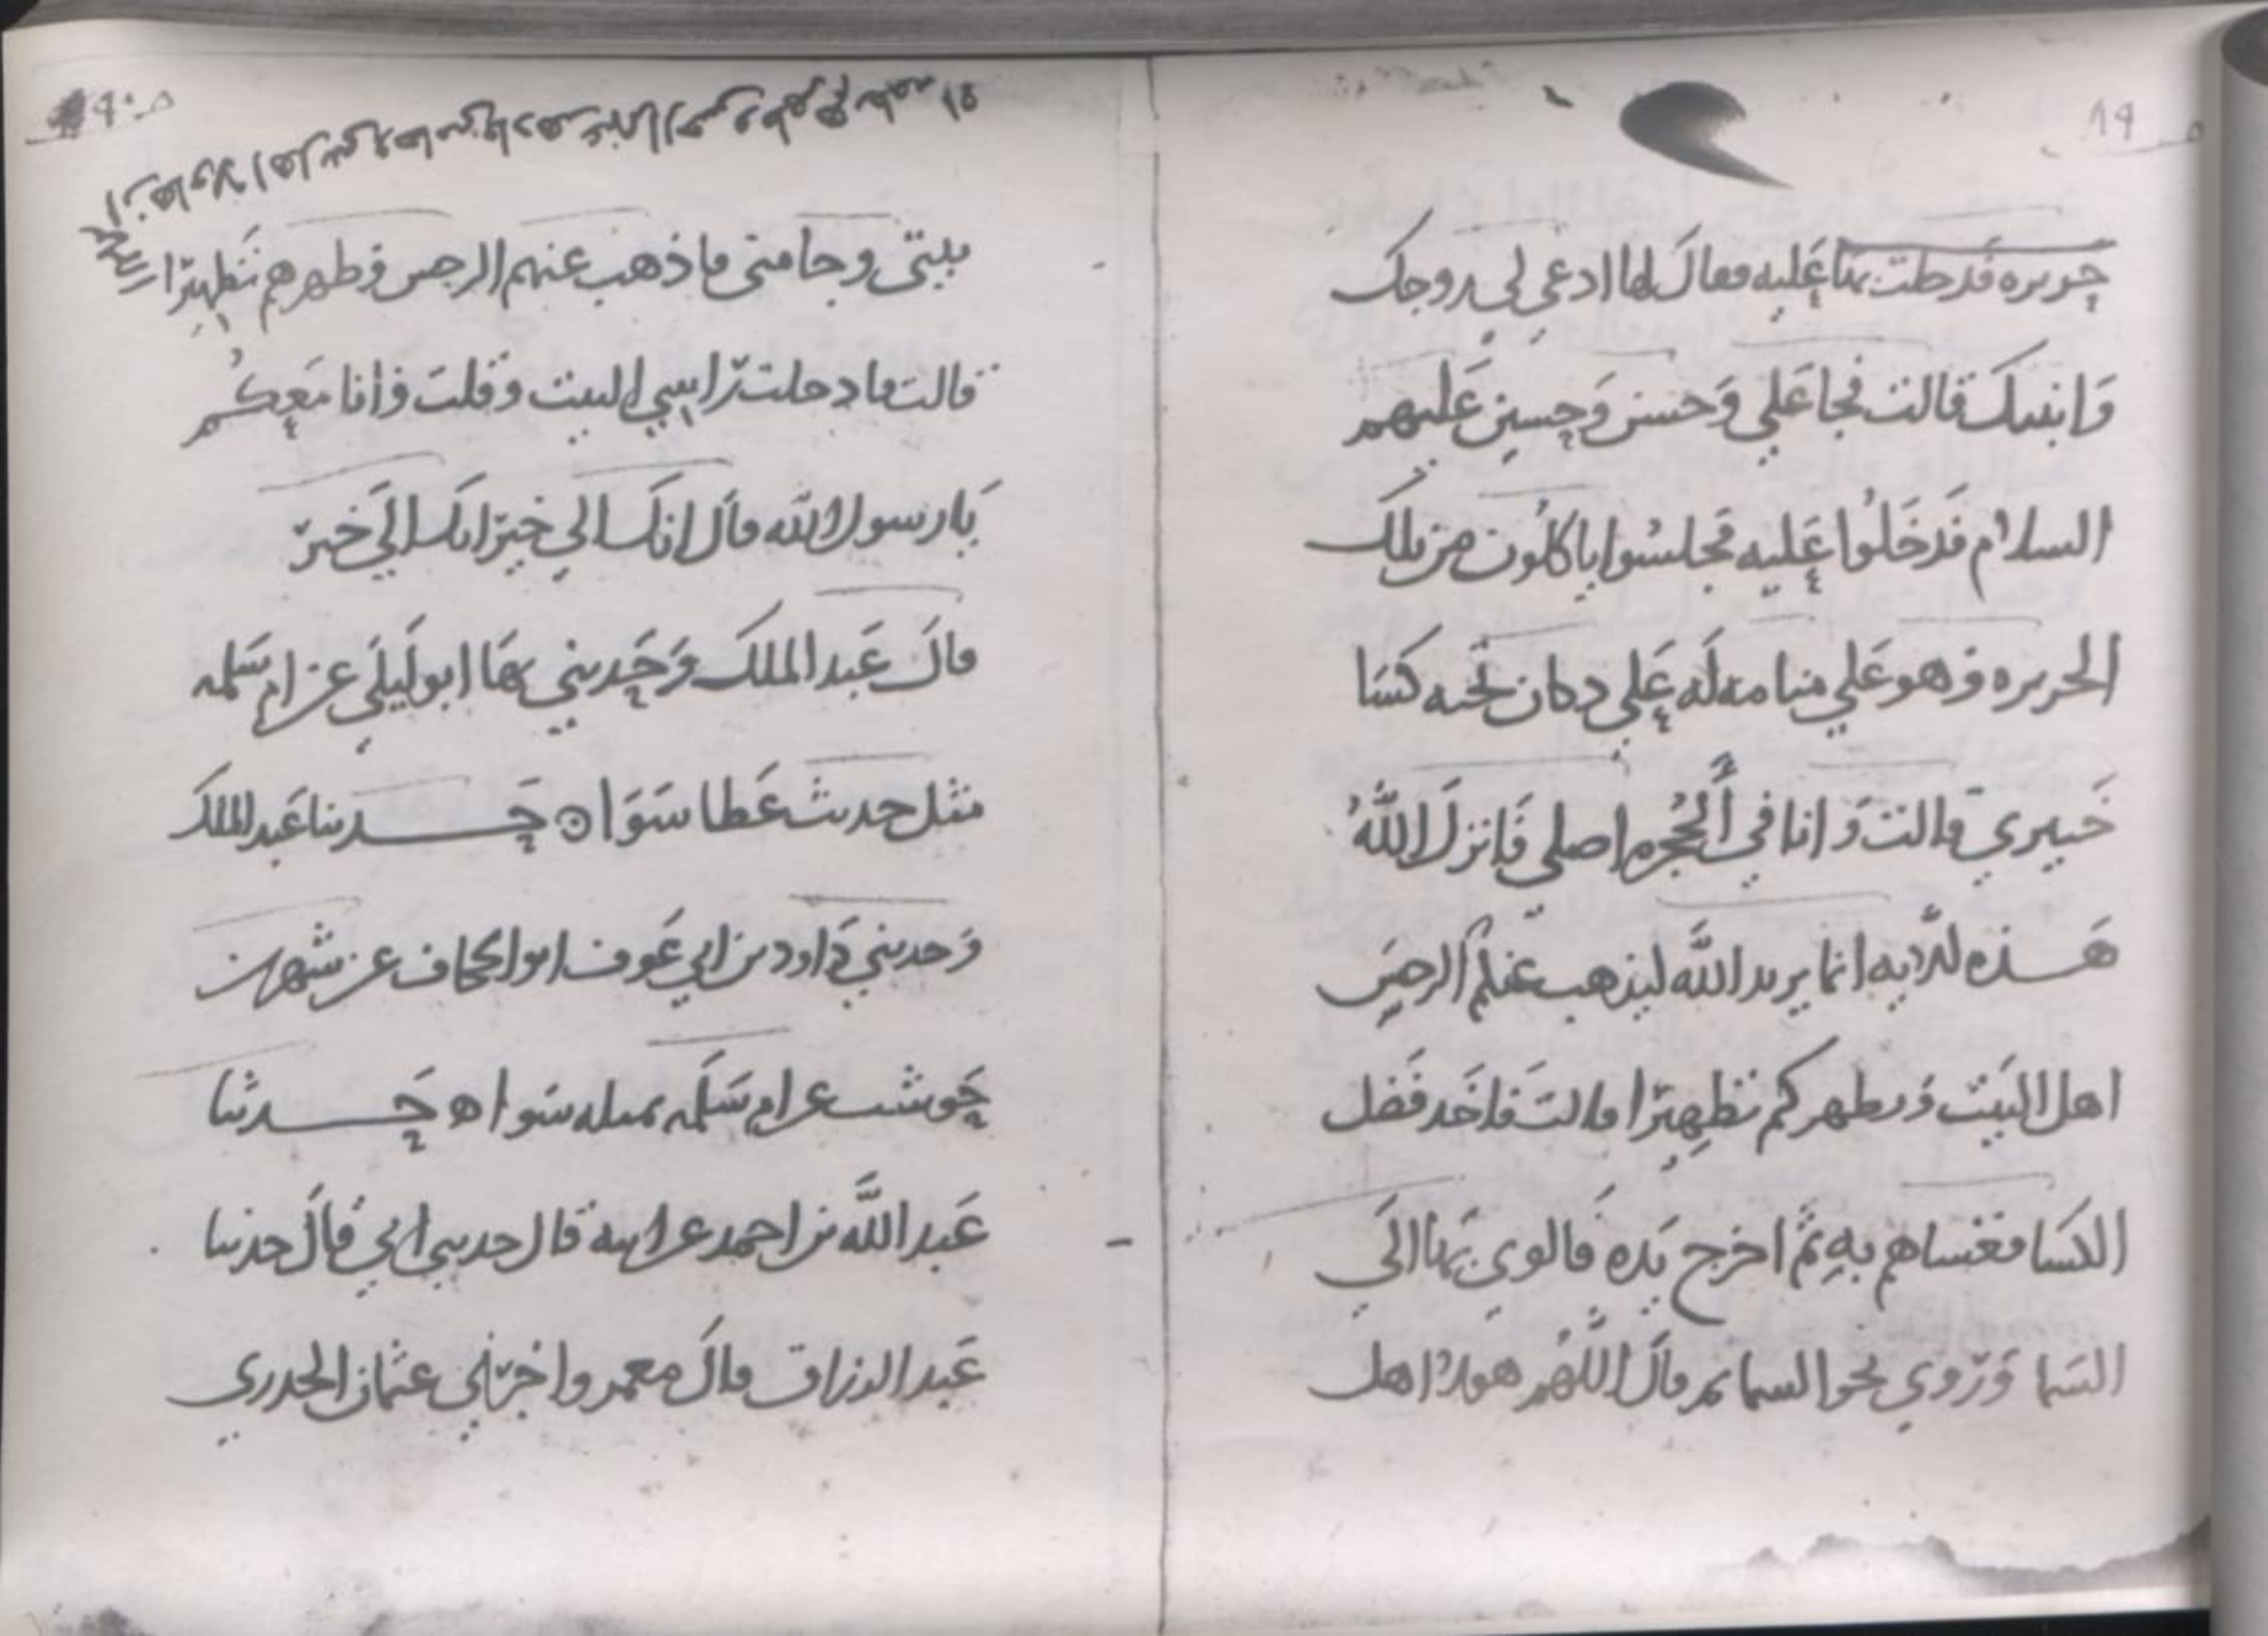 ص ٨٩
حريره فدخلت بها عليه فقال لها ادعي لي زوجك
وَابنيك قالت فجا عَلي وَحسن وَحسين عَليهم
السلام فدَخَلُوا عَليه فجلسُوا ياكلُون من تلك
الحريره وهو عَلي منامه لَه عَلي دكان تحته كسَا
خَيبري قالت وَانا في الحُجره اصلي فَانزلَ اللهُ
هَذه الايه انما يريد اللَّه ليذهب عنكم الرجس
اهل البَيت وَيطهركم تطهيرًا قالت فاخَذ فَضل
الكسَا فغشاهم بهِ ثم اخرج يَده فَالوي بهَا الَي
السَما وَرَوي نحو السما ثم قالَ اللَّهُم هولا اهل
ص ٩٠
بيتى وحامتى فاذهب عنهم الرجس وطهرهم تَطهيرًا
قالت فادخلت رَاسي البيت وقلت وَانا مَعكُم
يَا رسول الله قال انك الي خير انك الَي خير
قالَ عَبد الملكَ وَحَدثني بهَا ابو لَيلَي عن ام سَلمه
مثل حديث عَطا سَوَا ⊙ حَدثنا عَبد الملكَ
وَحدثني دَاود بن ابي عَوف ابو الجحاف عن شهر بن
حَوشب عن ام سَلَمه بمثله سَوا ه حَدثنا
عَبد اللَّه بن احمد عن ابيه قال حدثني ابي قالَ حدثنا
عَبد الرزاق قالَ معمر واخبرني عثمان الجدري